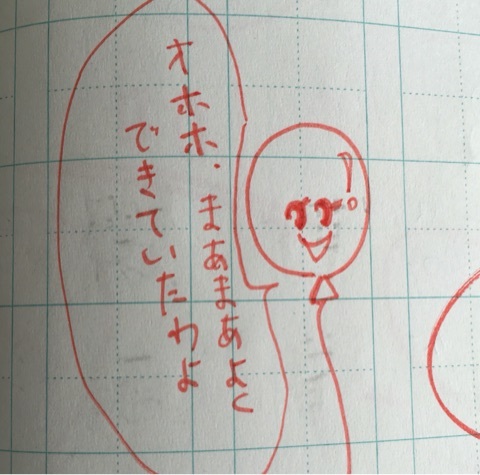 オホホ.まあまあよく
できていたわよ